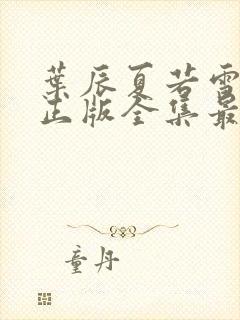 葉辰夏若雪
正版全集最
童丹